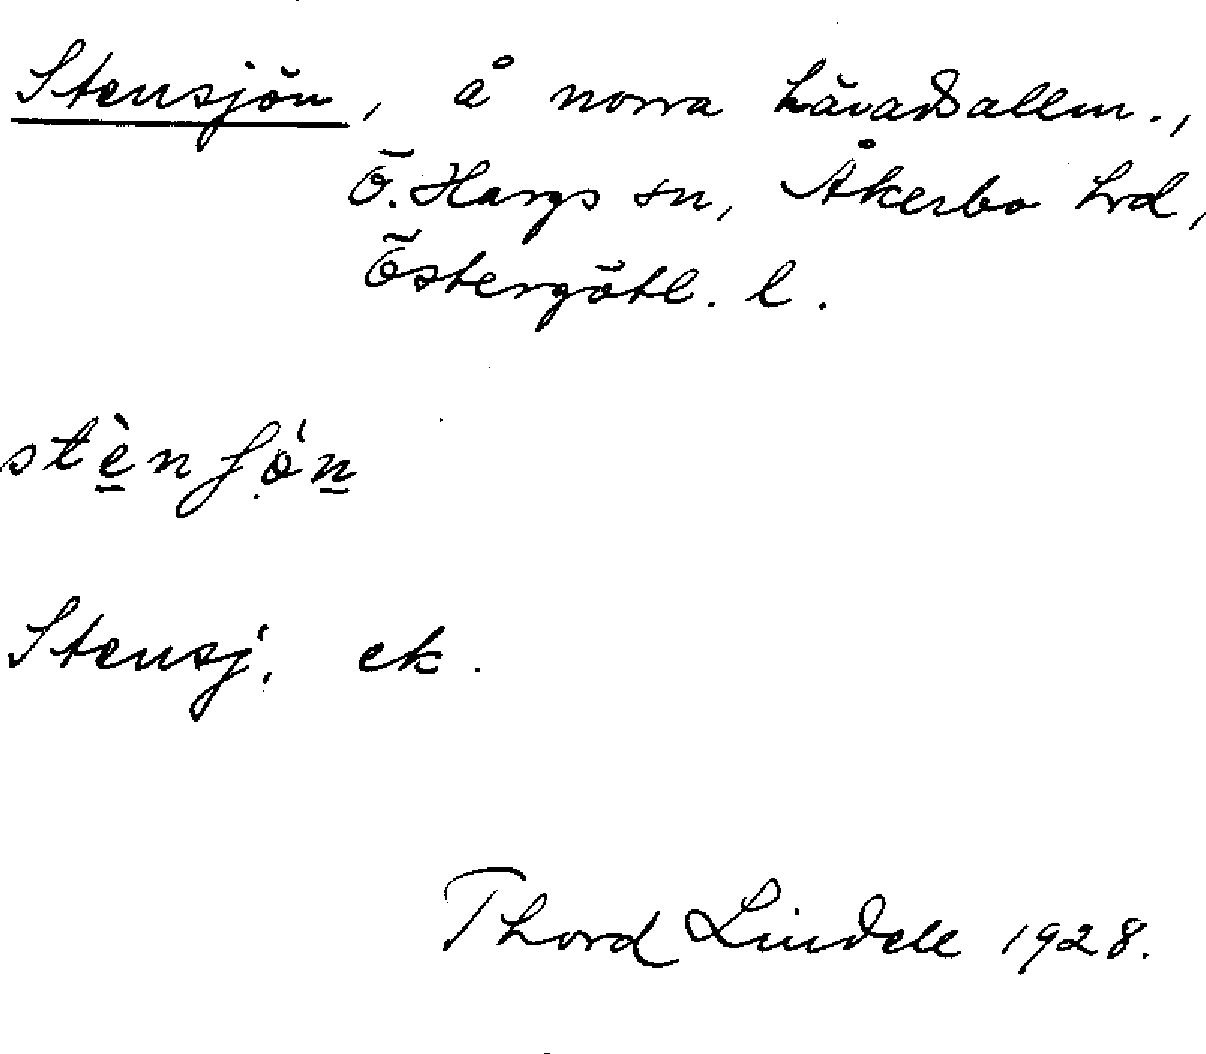 Stensjön, å norra häradsallm.,
Ö. Hargs sn, Åkerbo hrd,
Östergötl. l.
stèn ʃǿn
Stensj. ek.
Thord Lindell 1928.